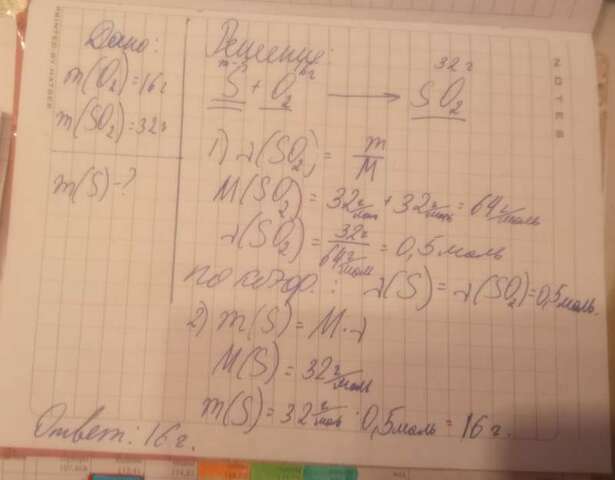 Дано:
m(O2)=16г
m(SO2)=32г
m(S)-?
Решение:
32г
S + O2 → SO2
1) ν(SO2) = m/M
M(SO2) = 32г/моль + 32г/моль = 64г/моль
ν(SO2) = 32г/64г/моль = 0,5моль
ν(S) = ν(SO2) = 0,5моль.
2) m(S) = M·ν
M(S) = 32г/моль
m(S) = 32г/моль · 0,5моль = 16г.
Ответ: 16г.
NOTES